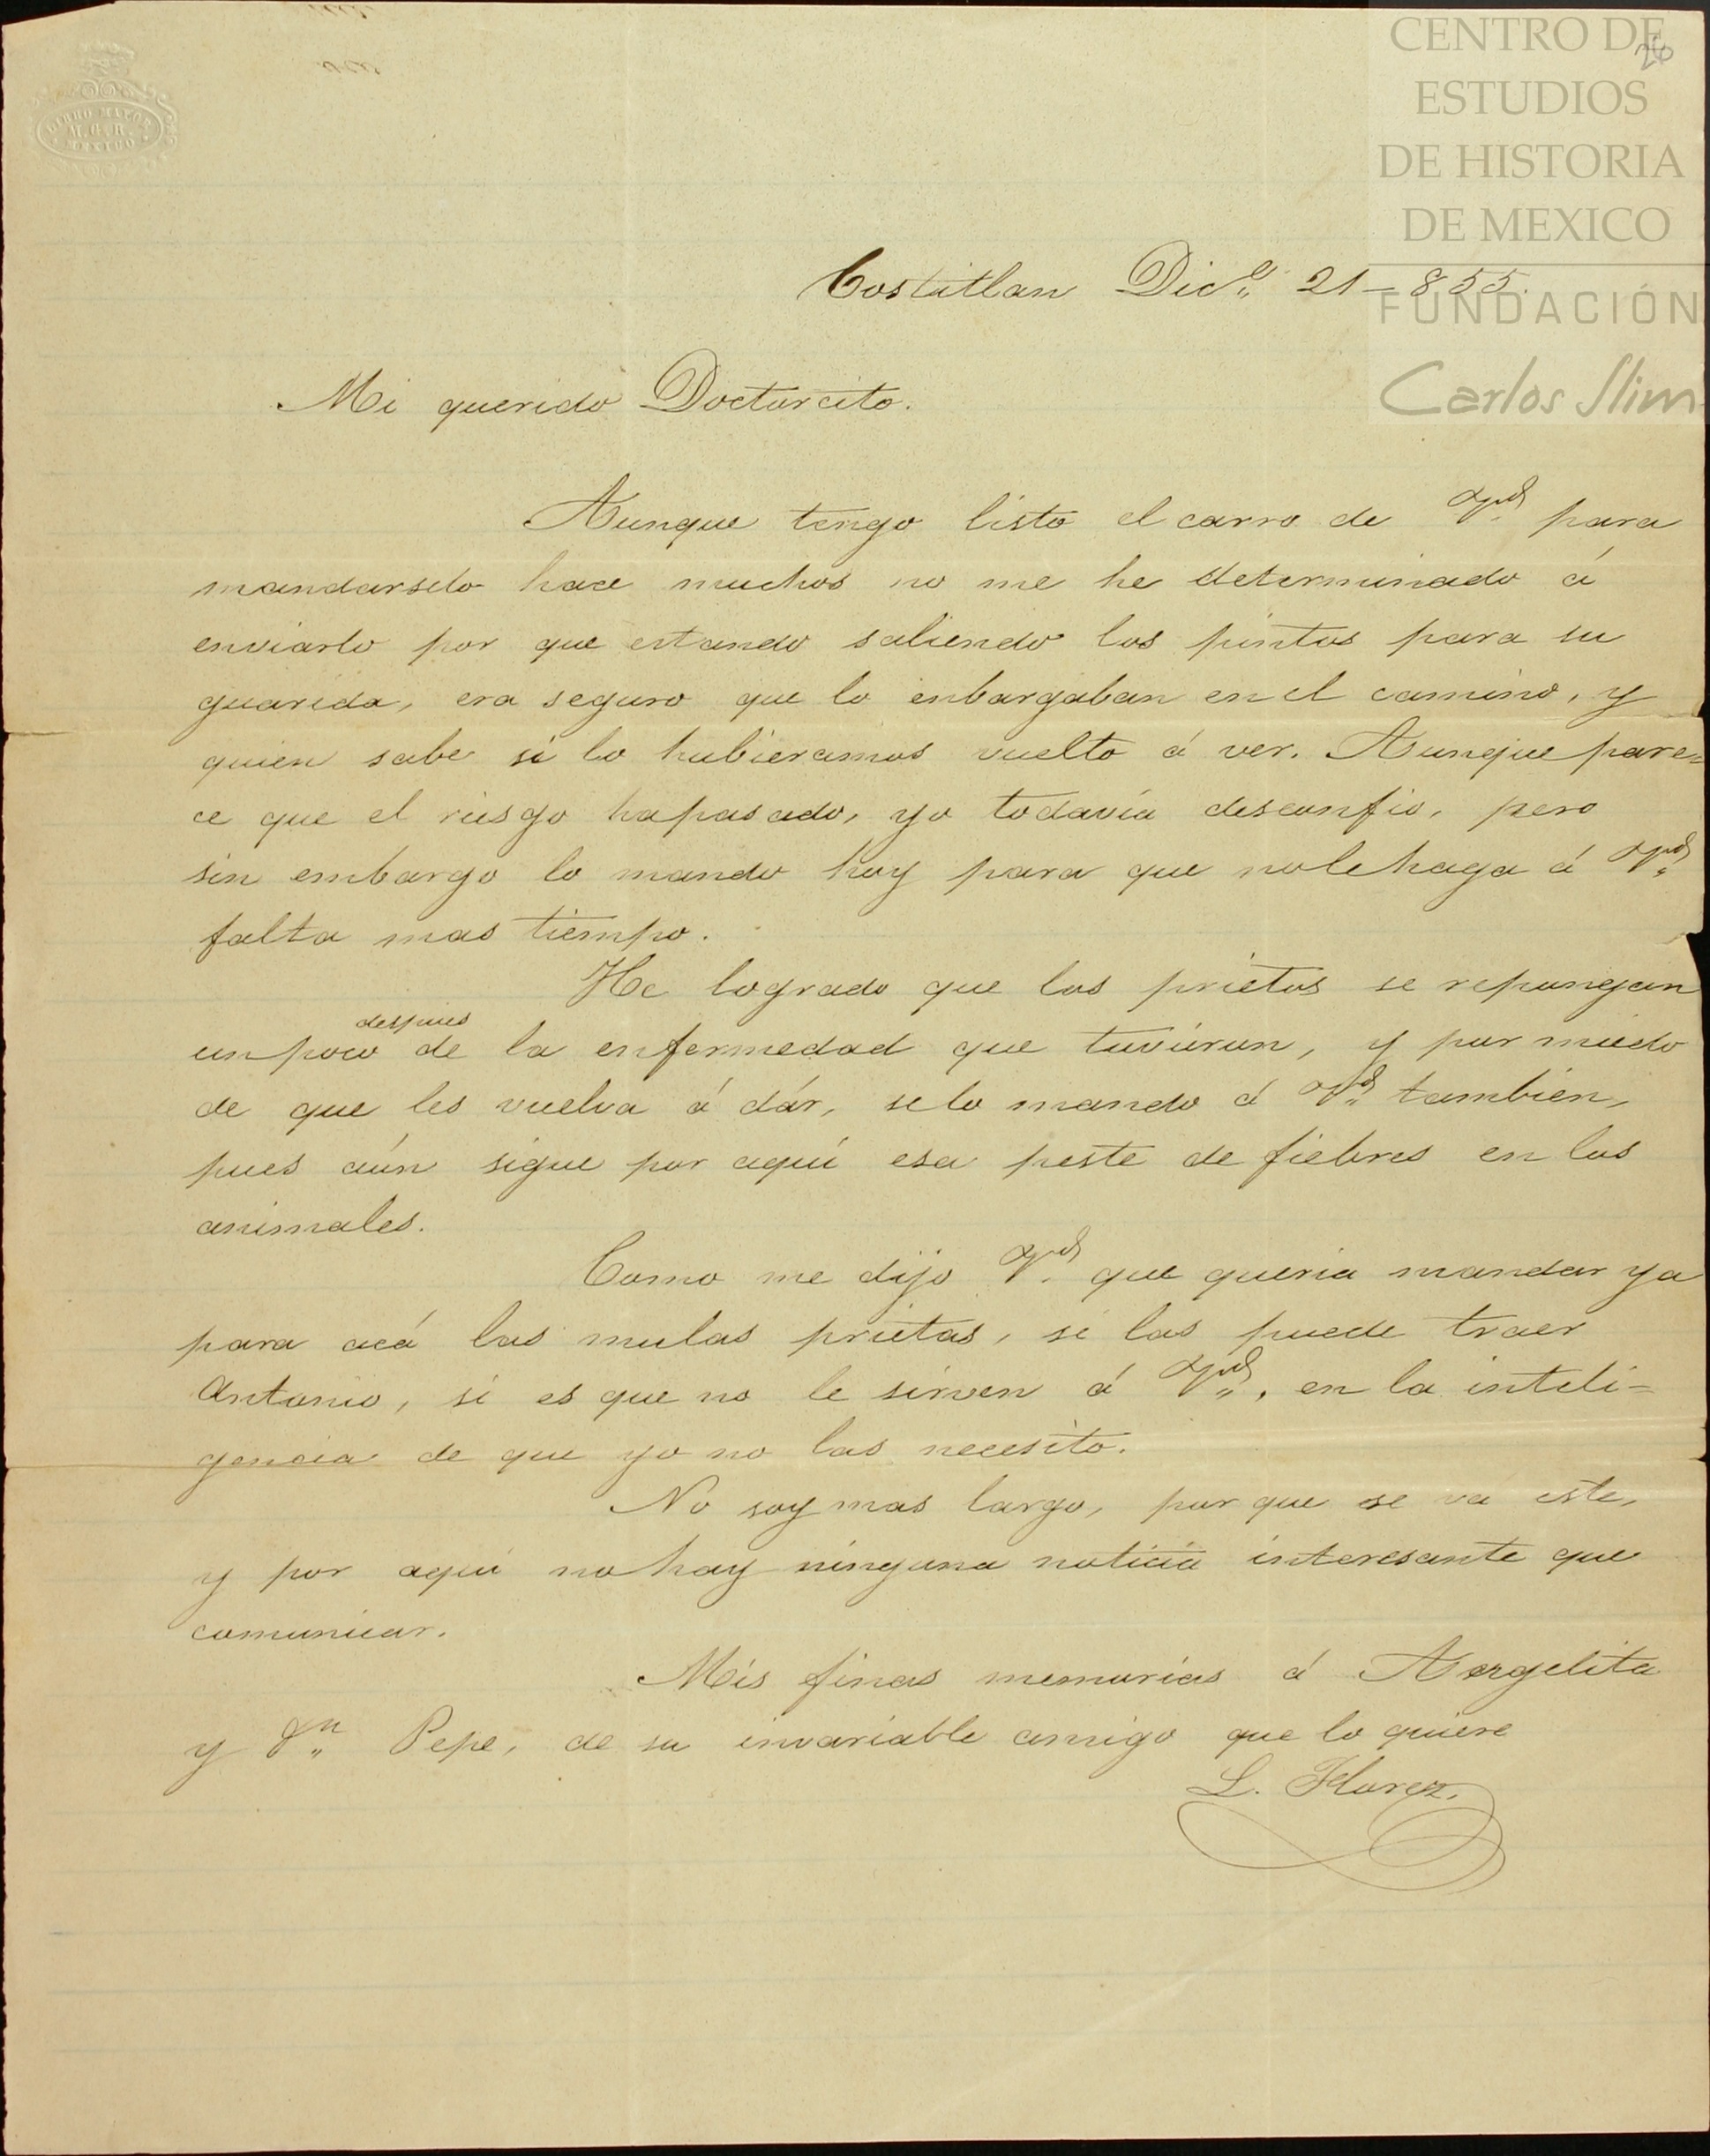 CENTRO DE
ESTUDIOS
DE HISTORIA
DE MEXICO
FUNDACIÓN
Carlos Slim
26
M.G.R.
MEXICO
Costitlan Dice. 21-855.
Mi querido Doctorcito.
Aunque tengo listo el carro de Vd. para
mandarselo hace muchos no me he determinado á
enviarlo por que estando saliendo los pintos para su
guarida, era seguro que lo enbargaban en el camino, y
quien sabe si lo hubieramos vuelto á ver. Aunque pare=
ce que el riesgo ha pasado, yo todavia desconfio, pero
sin embargo lo mando hoy para que no le haga á Vd.
falta mas tiempo.
He logrado que los prietos se repongan
un poco despues de la enfermedad que tuvieron, y por miedo
de que les vuelva á dár, se lo mando á Vd. tambien,
pues aún sigue por aquí esa peste de fiebres en los
animales.
Como me dijo Vd. que queria mandar ya
para acá las mulas prietas, si las puede traer
Antonio, si es que no le sirven á Vd., en la inteli=
gencia de que yo no las necesito.
No soy mas largo, por que se va este,
y por aquí no hay ninguna noticia interesante que
comunicar.
Mis finas memorias á Angelita
y Dn. Pepe, de su invariable amigo que lo quiere
L. Florez.